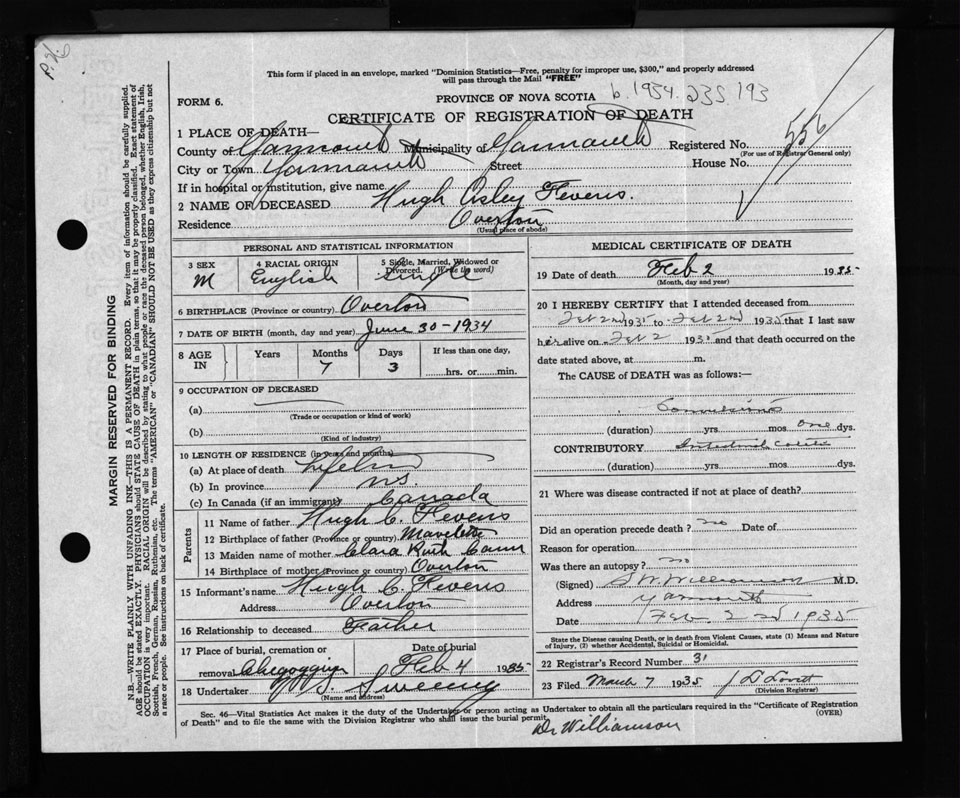 This form if placed in an envelope, marked "Dominion Statistics—Free, penalty for improper use, $300," and properly addressed
will pass through the Mail "FREE"
FORM 6.
PROVINCE OF NOVA SCOTIA b. 1934. 235 193
CERTIFICATE OF REGISTRATION OF DEATH
1 PLACE OF DEATH— 556
County of Yarmouth Municipality of Yarmouth Registered No.
(For use of Registrar General only)
City or Town Yarmouth Street House No.
If in hospital or institution, give name
2 NAME OF DECEASED Hugh Osley Fevens.
Residence Overton
(Usual place of abode)
PERSONAL AND STATISTICAL INFORMATION
3 SEX 4 RACIAL ORIGIN 5 Single, Married, Widowed or Divorced. (Write the word)
M English Single
6 BIRTHPLACE (Province or country) Overton
7 DATE OF BIRTH (month, day and year) June 30-1934
8 AGE IN Years Months Days If less than one day,
7 3 hrs. or min.
9 OCCUPATION OF DECEASED
(a)
(Trade or occupation or kind of work)
(b)
(Kind of industry)
10 LENGTH OF RESIDENCE (in years and months)
(a) At place of death
(b) In province N.S.
(c) In Canada (if an immigrant) Canada
Parents
11 Name of father Hugh C. Fevens
12 Birthplace of father (Province or country) Mavelette
13 Maiden name of mother Clara Ruth Cann
14 Birthplace of mother (Province or country) Overton
15 Informant's name Hugh C. Fevens
Address Overton
16 Relationship to deceased Father
17 Place of burial, cremation or Date of burial
removal Feb 4 1935
18 Undertaker Sweeny
(Name and address)
MEDICAL CERTIFICATE OF DEATH
19 Date of death Feb 2 1935
(Month, day and year)
20 I HEREBY CERTIFY that I attended deceased from
Feb 2nd 1935 to Feb 2nd 1935 that I last saw
him alive on Feb 2 1935 and that death occurred on the
date stated above, at m.
The CAUSE of DEATH was as follows:—
Convulsions
(duration) yrs. mos. one dys.
CONTRIBUTORY
(duration) yrs. mos. dys.
21 Where was disease contracted if not at place of death?
Did an operation precede death? no Date of
Reason for operation
Was there an autopsy? no
(Signed) S W Williamson M.D.
Address Yarmouth
Date Feb 2nd 1935
State the Disease causing Death, or in death from Violent Causes, state (1) Means and Nature
of Injury, (2) whether Accidental, Suicidal or Homicidal.
22 Registrar's Record Number 31
23 Filed March 7 1935 J D Lovitt
(Division Registrar)
Sec. 46—Vital Statistics Act makes it the duty of the Undertaker or person acting as Undertaker to obtain all the particulars required in the "Certificate of Registration
of Death" and to file the same with the Division Registrar who shall issue the burial permit. (OVER)
Dr Williamson
MARGIN RESERVED FOR BINDING
N.B.—WRITE PLAINLY WITH UNFADING INK—THIS IS A PERMANENT RECORD. Every item of information should be carefully supplied.
AGE should be stated EXACTLY. PHYSICIANS should STATE CAUSE OF DEATH in plain terms, so that it may be properly classified. Exact statement of
OCCUPATION is very important. RACIAL ORIGIN will be described by stating to what people or race the deceased person belonged, whether English, Irish,
Scottish, French, German, Russian, Ruthenian, etc. The terms "AMERICAN" or "CANADIAN" SHOULD NOT BE USED as they express citizenship but not
a race or people. See instructions on back of certificate.